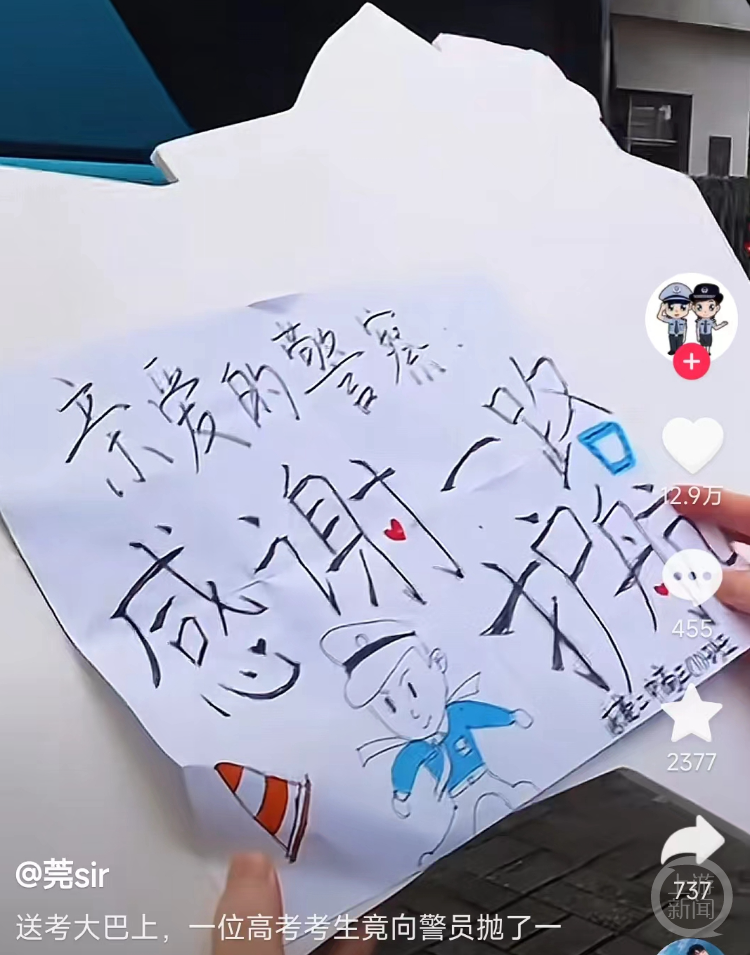 亲爱的警察:
感谢一路
护航
12.9万
455
2377
737
上游
新闻
@莞sir
送考大巴上，一位高考考生竟向警员抛了一